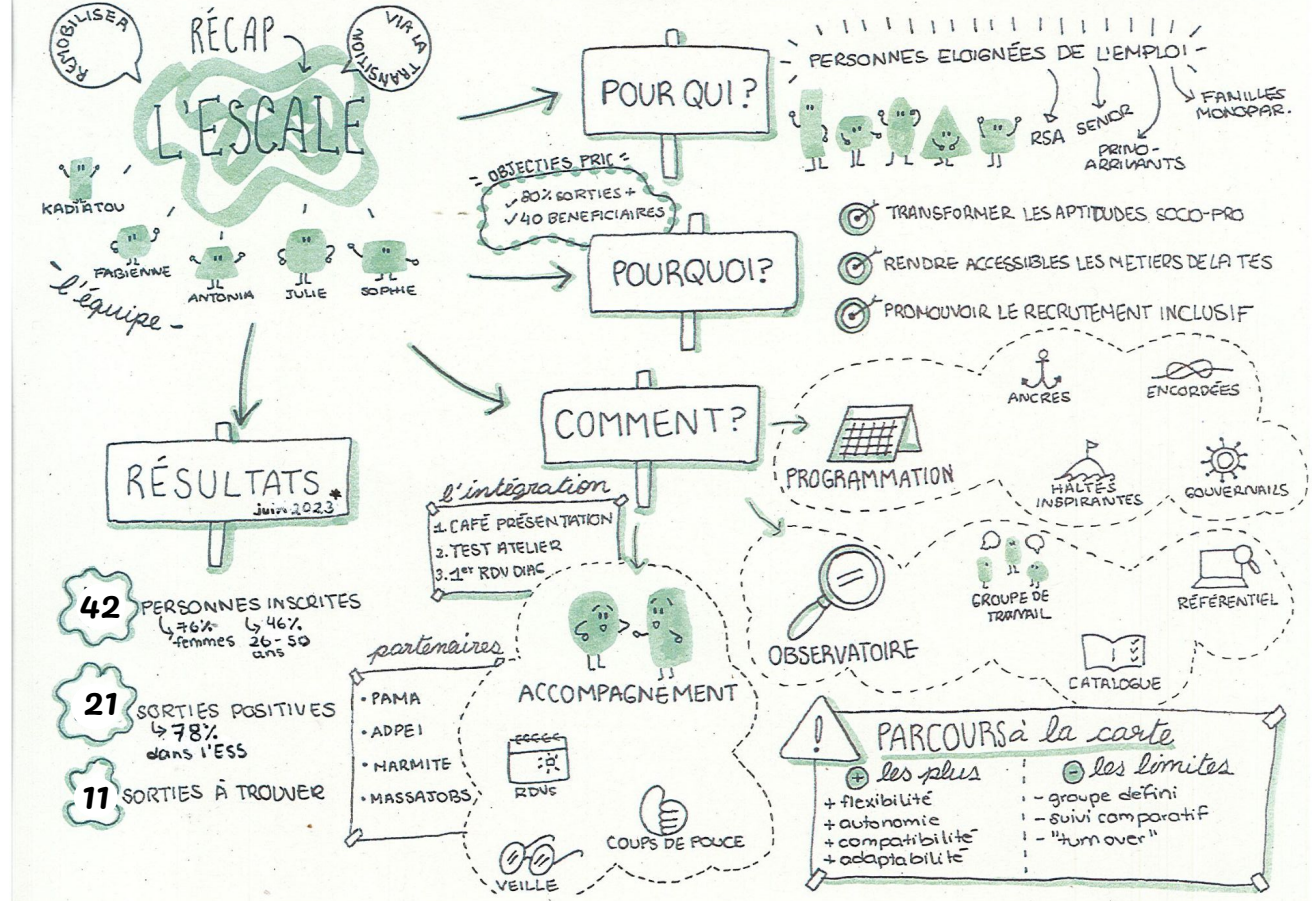 REMOBILISER
RÉCAP
VIA LA TRANSITION
L'ESCALE
KADIATOU
FABIENNE
ANTONIA
JULIE
SOPHIE
l'équipe
POUR QUI?
PERSONNES ELOIGNÉES DE L'EMPLOI
RSA
SENIOR
PRIMO-
ARRIVANTS
FAMILLES
MONOPAR.
OBJECTIFS PRIC
80% SORTIES +
40 BENEFICIAIRES
POURQUOI?
TRANSFORMER LES APTITUDES SOCIO-PRO
RENDRE ACCESSIBLES LES METIERS DE LA TES
PROMOUVOIR LE RECRUTEMENT INCLUSIF
COMMENT?
PROGRAMMATION
ANCRES
ENCORDÉES
HALTES
INSPIRANTES
GOUVERNAILS
OBSERVATOIRE
GROUPE DE
TRAVAIL
RÉFÉRENTIEL
CATALOGUE
l'intégration
1. CAFÉ PRÉSENTATION
2. TEST ATELIER
3. 1er RDV DIAG
ACCOMPAGNEMENT
RDVS
COUPS DE POUCE
VEILLE
partenaires
• PAMA
• ADPEI
• MARMITE
• MASSAJOBS
RÉSULTATS *
juin 2023
42 PERSONNES INSCRITES
76% femmes
46% 26-50 ans
21 SORTIES POSITIVES
78%
dans l'ESS
11 SORTIES À TROUVER
! PARCOURS à la carte
+ les plus
+ flexibilité
+ autonomie
+ compatibilité
+ adaptabilité
- les limites
- groupe défini
- suivi comparatif
- "turn over"